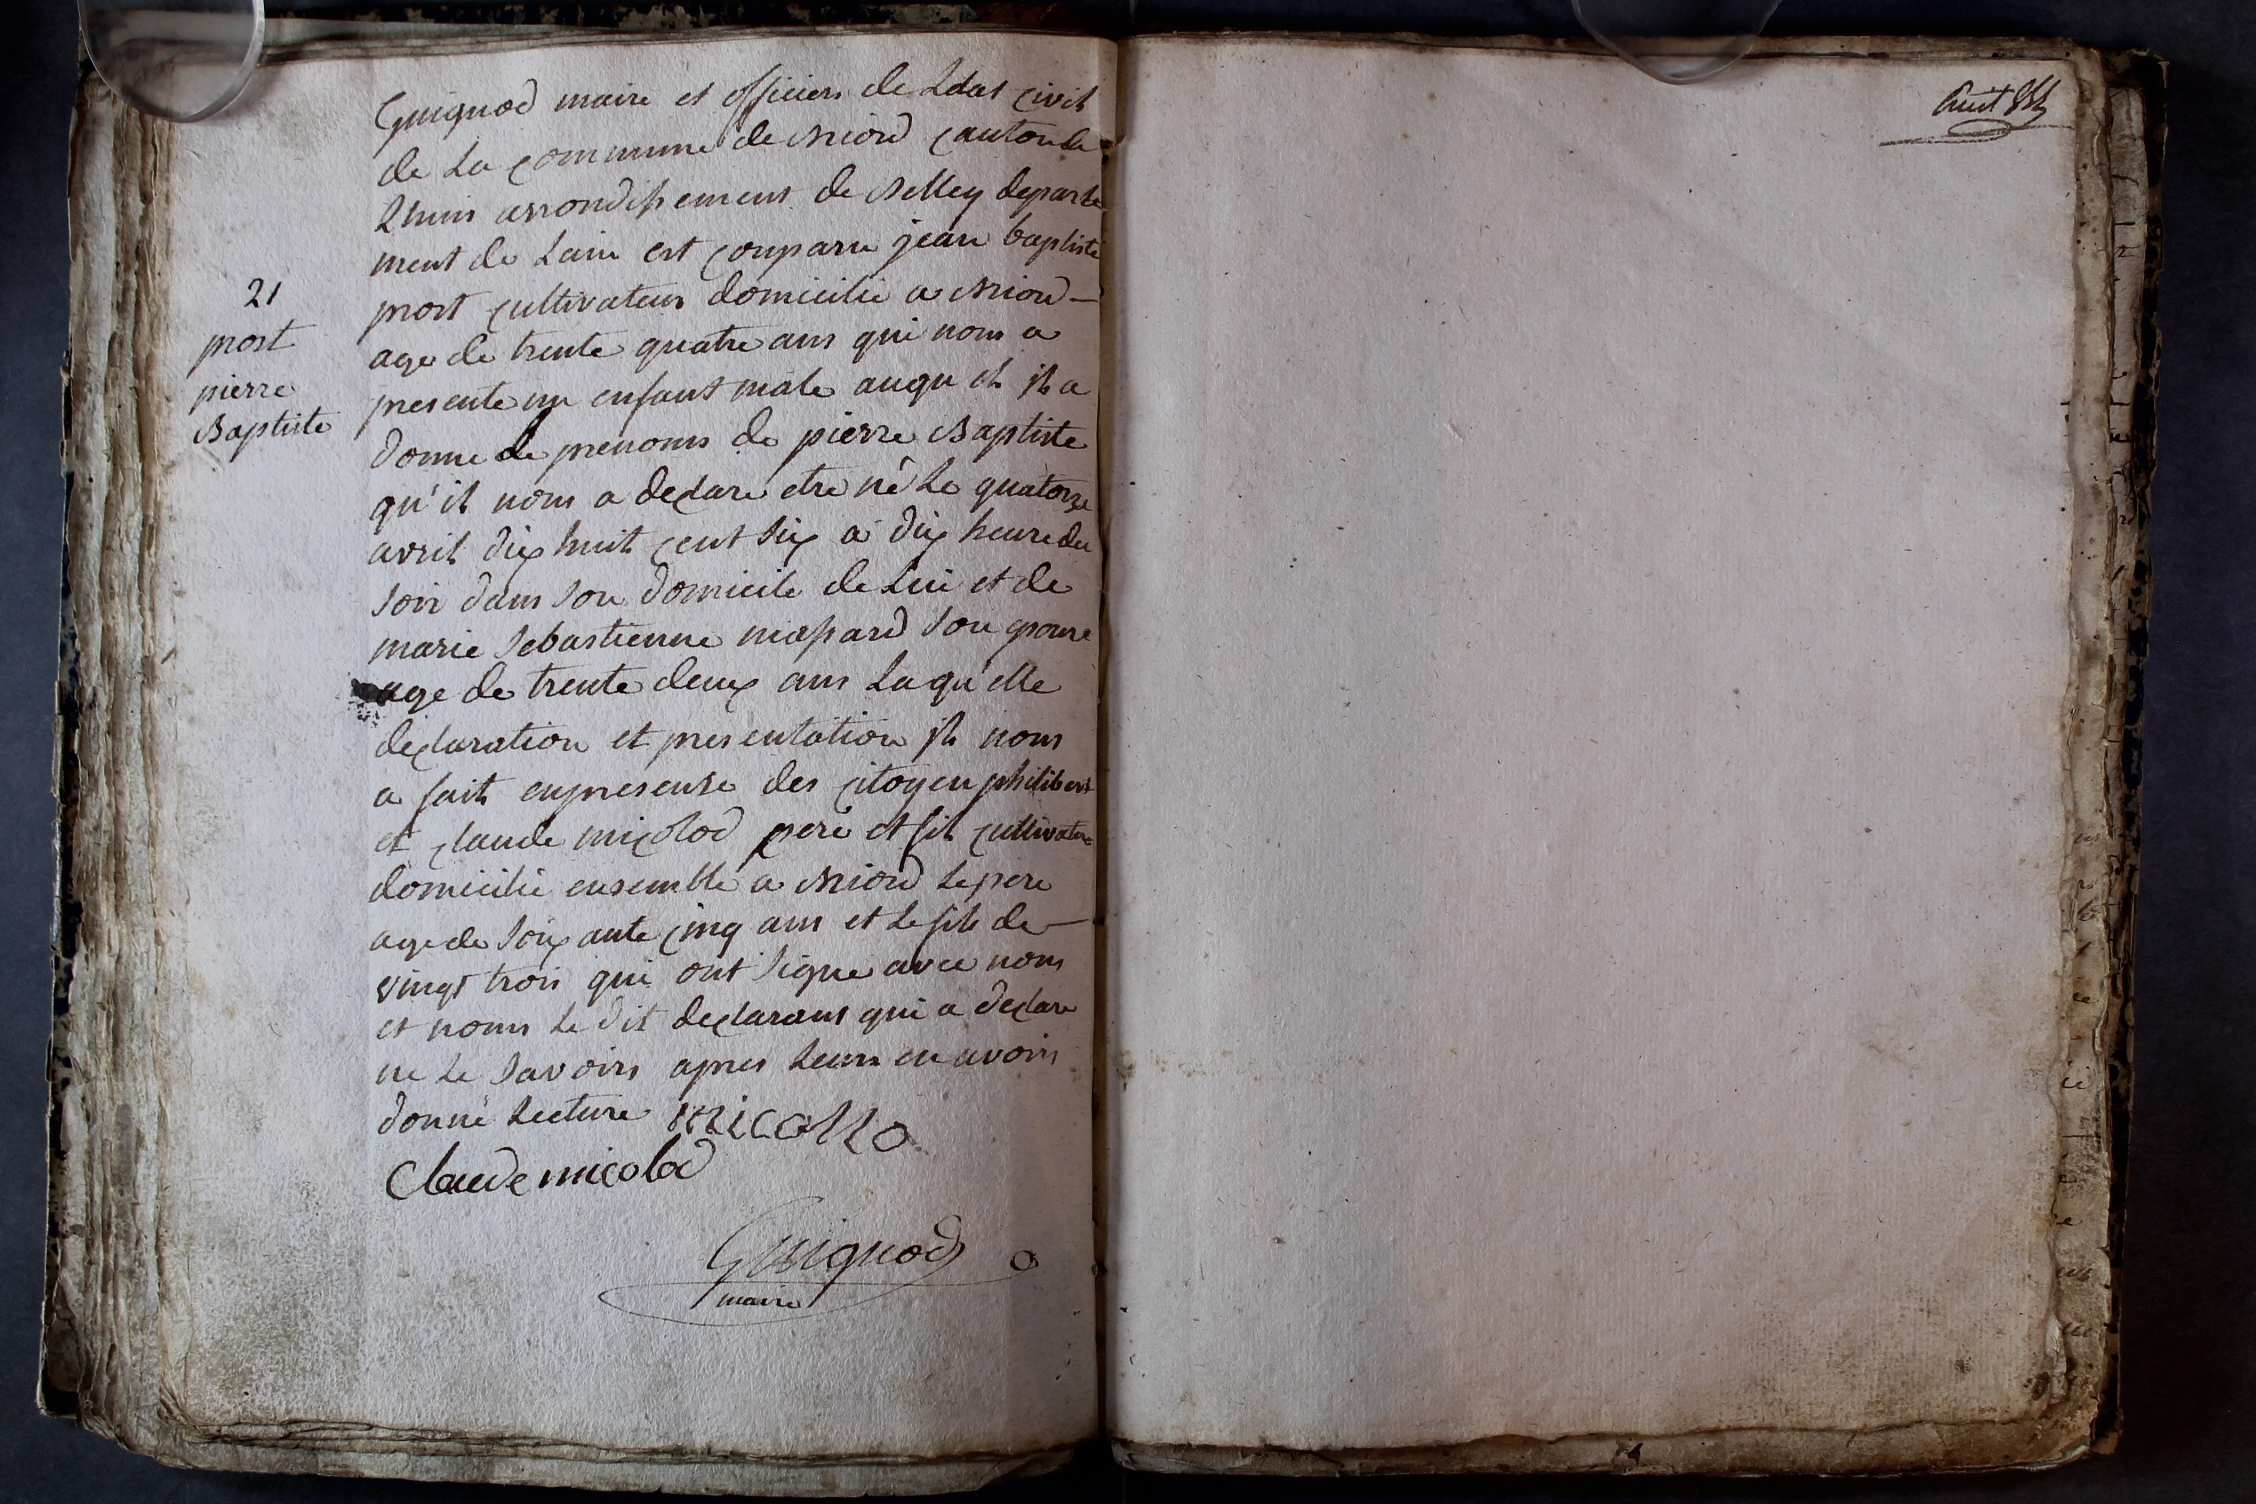 Guignod maire et officiers de Letat civil
de La commune de Briord canton de
Lhuis arrondissement de Belley departe
ment de Lain est comparu jean baptiste
prost cultivateur domicilie a Briord
age de trente quatre ans qui nous a
presente un enfant male auqu el il a
donne de prenoms de pierre Baptiste
qu'il nous a declare etre né Le quatorze
avril dix huit cent six a dix heure du
soir dans son domicile de Lui et de
marie sebastienne massard son epouse
age de trente deux ans Laqu'elle
declaration et presentation il nous
a fait en presense des citoyen philibert
et claude micolod pere et fils cultivateur
domicilie ensemble a Briord Le pere
age de soixante cinq ans et Le fils de
vingt trois qui ont signe avec nous
et nonn Le dit declarant qui a declare
ne Le savoirs apres Leurs en avoirs
donné Lecture
Claude micolod
Guignod
maire
21
prost
pierre
Baptiste
huit